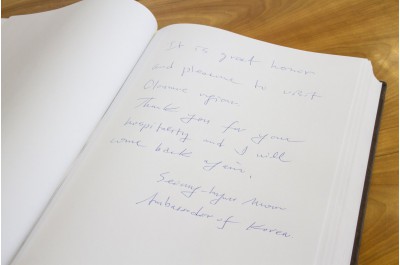 It is great honor
and pleasure to visit
Thank you for your
hospitality and I will
come back again.
Ambassador of Korea